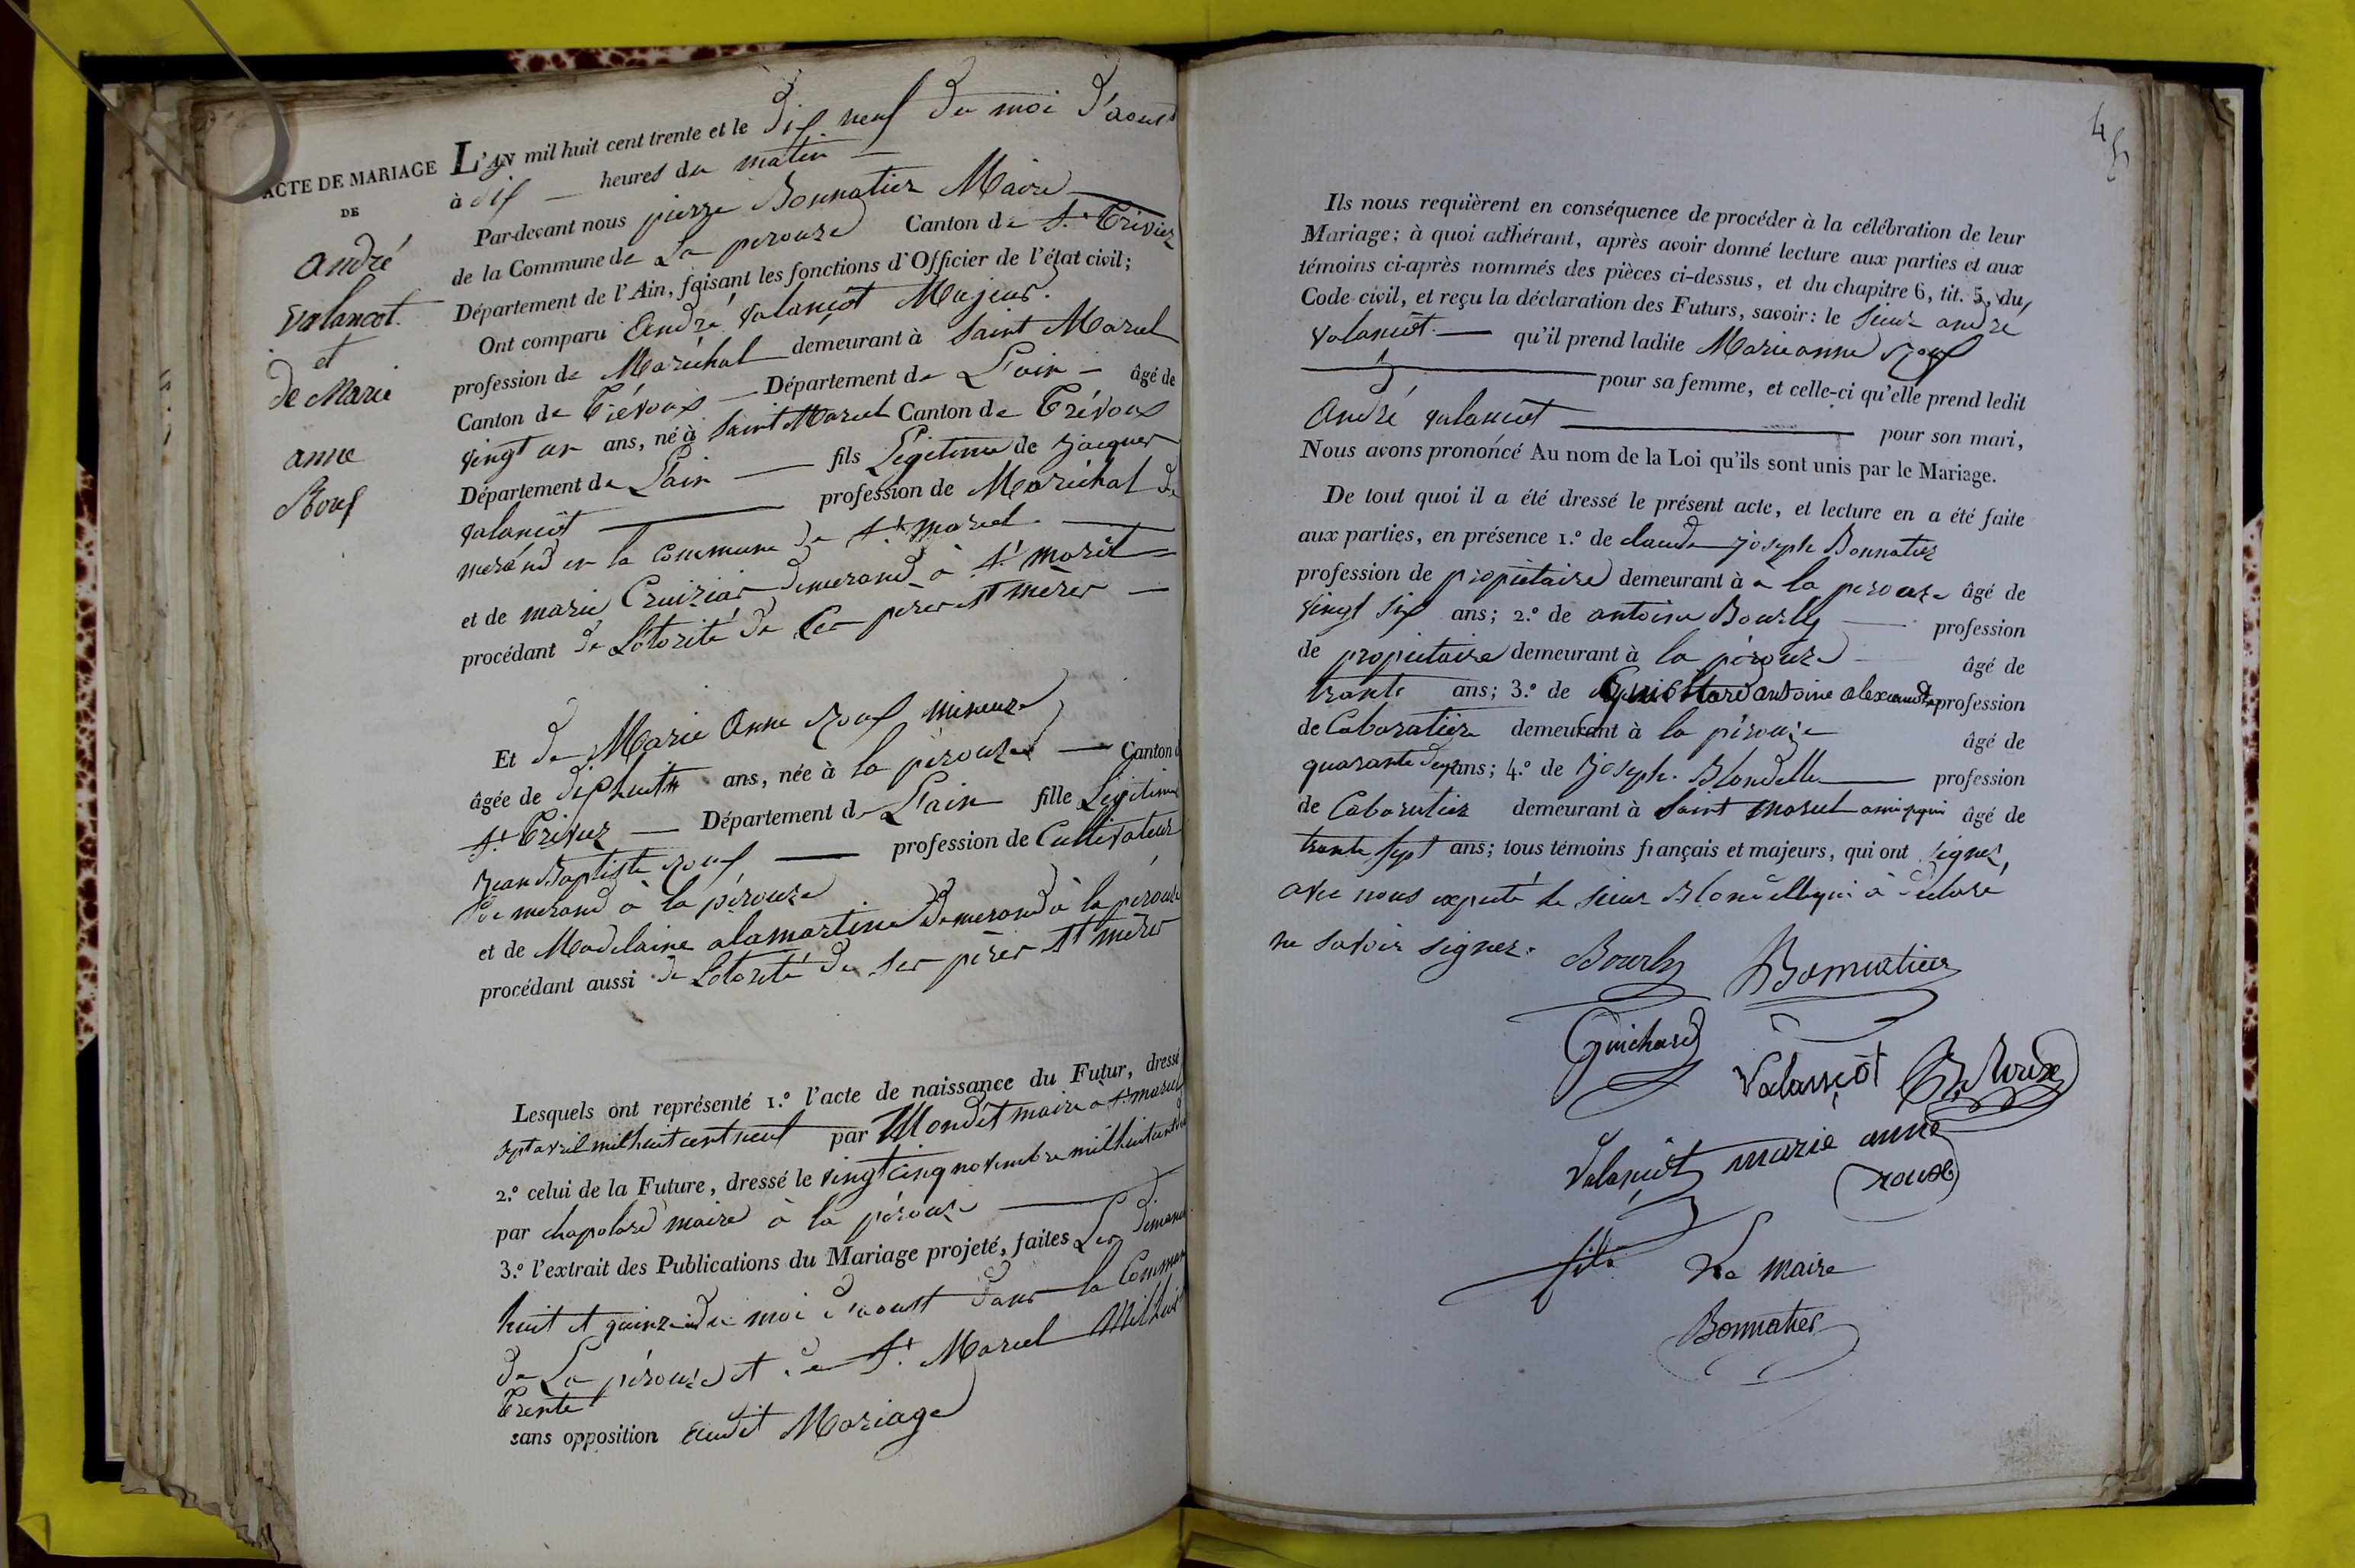 ACTE DE MARIAGE
DE
André
valancot.
et
de Marie
anne
Roux
L'AN mil huit cent trente et le dix neuf du moi d'aoust
à dix heures du matin
Par-devant nous pierre Bonnatier Maire
de la Commune de La perouze Canton de St. Trivier
Département de l'Ain, faisant les fonctions d'Officier de l'état civil;
Ont comparu André valançot Majeur.
profession de Maréchal demeurant à Saint Marcel
Canton de Trévoux Département de L'ain âgé de
vingt un ans, né à Saint Marcel Canton de Trévoux
Département de L'ain fils Légitime de Jacques
valançot profession de Maréchal de
merand en la Commune de St. marcel
et de marie demerand à St.
procédant de Lotorité de Ses pères et mères
Et de Marie Anne roux mineure
âgée de dix huit ans, née à la pérouze Canton
St. Trivier Département de L'ain fille Légitime
Jean Baptiste roux profession de Cultivateur
demerand à la pérouze
et de Madelaine alamartine demerand à la pérouze
procédant aussi de Lotorité de ses pères et mères
Lesquels ont représenté 1.º l'acte de naissance du Futur, dressé
sept avril mil huit cent neuf par Mondet maire à St. marcel
2.º celui de la Future, dressé le vingt cinq novembre mil huit cent
par chapolard maire à la pérouze
3.º l'extrait des Publications du Mariage projeté, faites Les dimanc
huit et quinze du moi d'aoust dans la Commun
de La pérouze et de St. Marcel Mil huit
Trente
sans opposition audit Mariage
45
Ils nous requièrent en conséquence de procéder à la célébration de leur
Mariage; à quoi adhérant, après avoir donné lecture aux parties et aux
témoins ci-après nommés des pièces ci-dessus, et du chapitre 6, tit. 5, du
Code civil, et reçu la déclaration des Futurs, savoir: le Sieur andré
valançot qu'il prend ladite Marie anne roux
pour sa femme, et celle-ci qu'elle prend ledit
André valançot pour son mari,
Nous avons prononcé Au nom de la Loi qu'ils sont unis par le Mariage.
De tout quoi il a été dressé le présent acte, et lecture en a été faite
aux parties, en présence 1.º de claude joseph Bonnatier
profession de propietaire demeurant à a la perouze âgé de
vingt six ans; 2.º de antoine Bourly profession
de propietaire demeurant à la pérouze âgé de
trante ans; 3.º de antoine alexandre profession
de Cabaratier demeurant à la pérouze âgé de
quarante deux ans; 4.º de Joseph. Blondelle profession
de Cabaratier demeurant à Saint marcel âgé de
trante sept ans; tous témoins français et majeurs, qui ont signés,
avec nous expecté le sieur Blondelle qui à déclaré
ne savoir signer.
Bourly Bonnatier
Guichard
Valançot Roux
Valançot marie anne
roux
fils
Le maire
Bonnatier